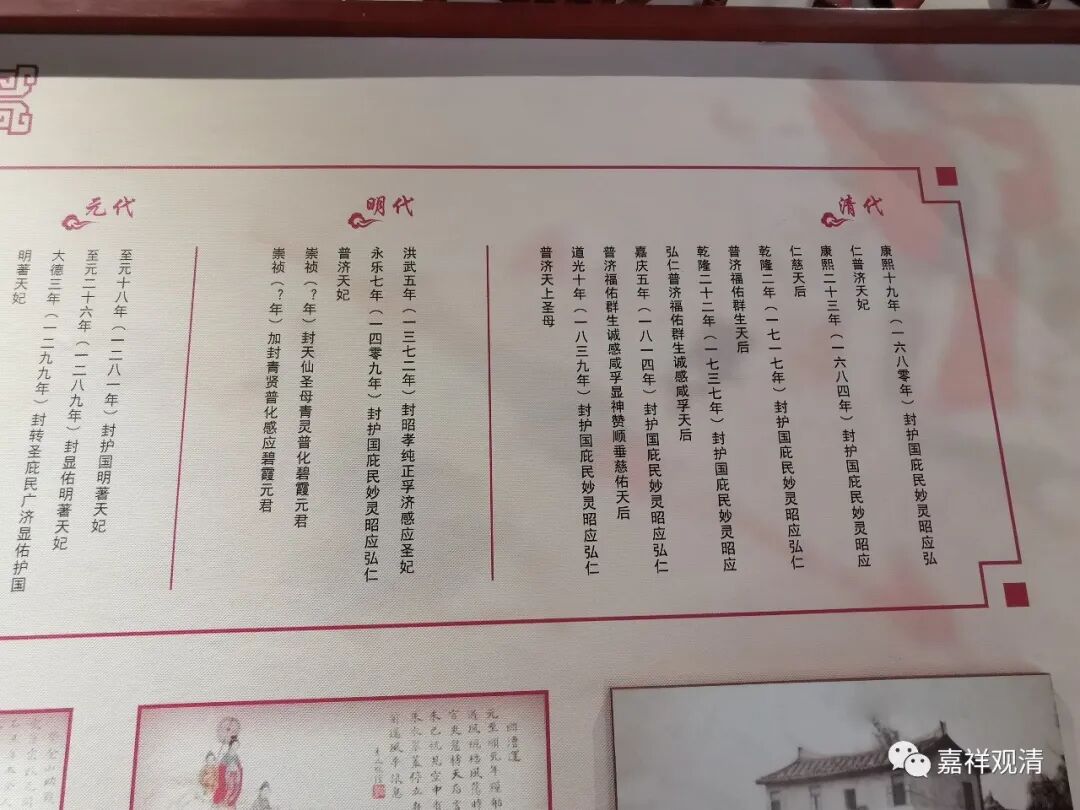 清代
康熙十九年（一六八零年）封护国庇民妙灵昭应弘
仁普济天妃
康熙二十三年（一六八四年）封护国庇民妙灵昭应
仁慈天后
乾隆二年（一七一七年）封护国庇民妙灵昭应弘仁
普济福佑群生天后
乾隆二十二年（一七三七年）封护国庇民妙灵昭应
弘仁普济福佑群生诚感咸孚天后
嘉庆五年（一八一四年）封护国庇民妙灵昭应弘仁
普济福佑群生诚感咸孚显神赞顺垂慈佑天后
道光十年（一八三九年）封护国庇民妙灵昭应弘仁
普济天上圣母
明代
洪武五年（一三七二年）封昭孝纯正孚济感应圣妃
永乐七年（一四零九年）封护国庇民妙灵昭应弘仁
普济天妃
崇祯（？年）封天仙圣母青灵普化碧霞元君
崇祯（？年）加封青贤普化感应碧霞元君
元代
至元十八年（一二八一年）封护国明著天妃
至元二十六年（一二八九年）封显佑明著天妃
大德三年（一二九九年）封转圣庇民广济显佑护国
明著天妃
嘉祥观清